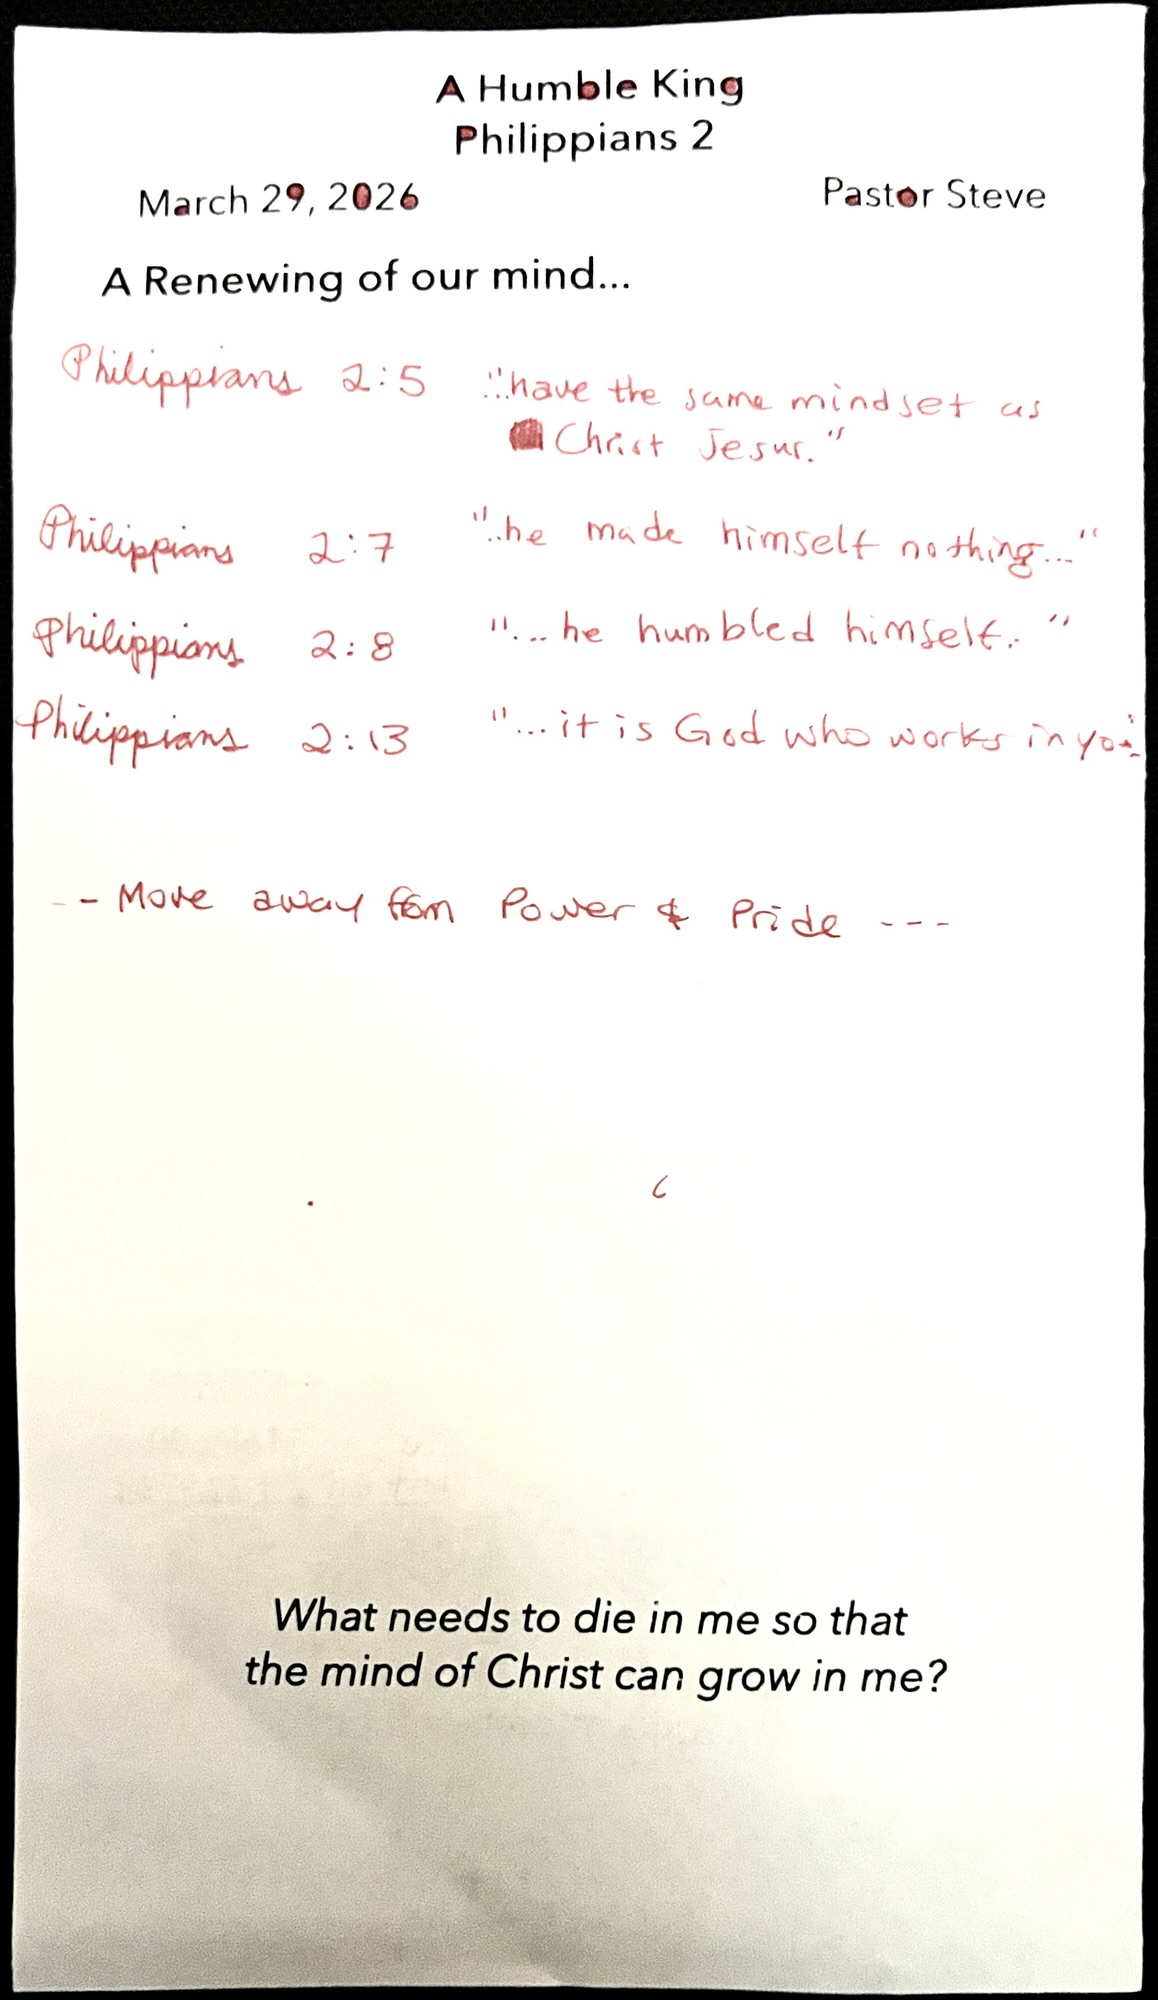 A Humble King
Philippians 2
March 29, 2026 Pastor Steve
A Renewing of our mind...
Philippians 2:5 "...have the same mindset as
Christ Jesus."
Philippians 2:7 "..he made himself nothing..."
Philippians 2:8 "... he humbled himself.. "
Philippians 2:13 "...it is God who works in you..."
-- Move away from Power & Pride ---
What needs to die in me so that
the mind of Christ can grow in me?